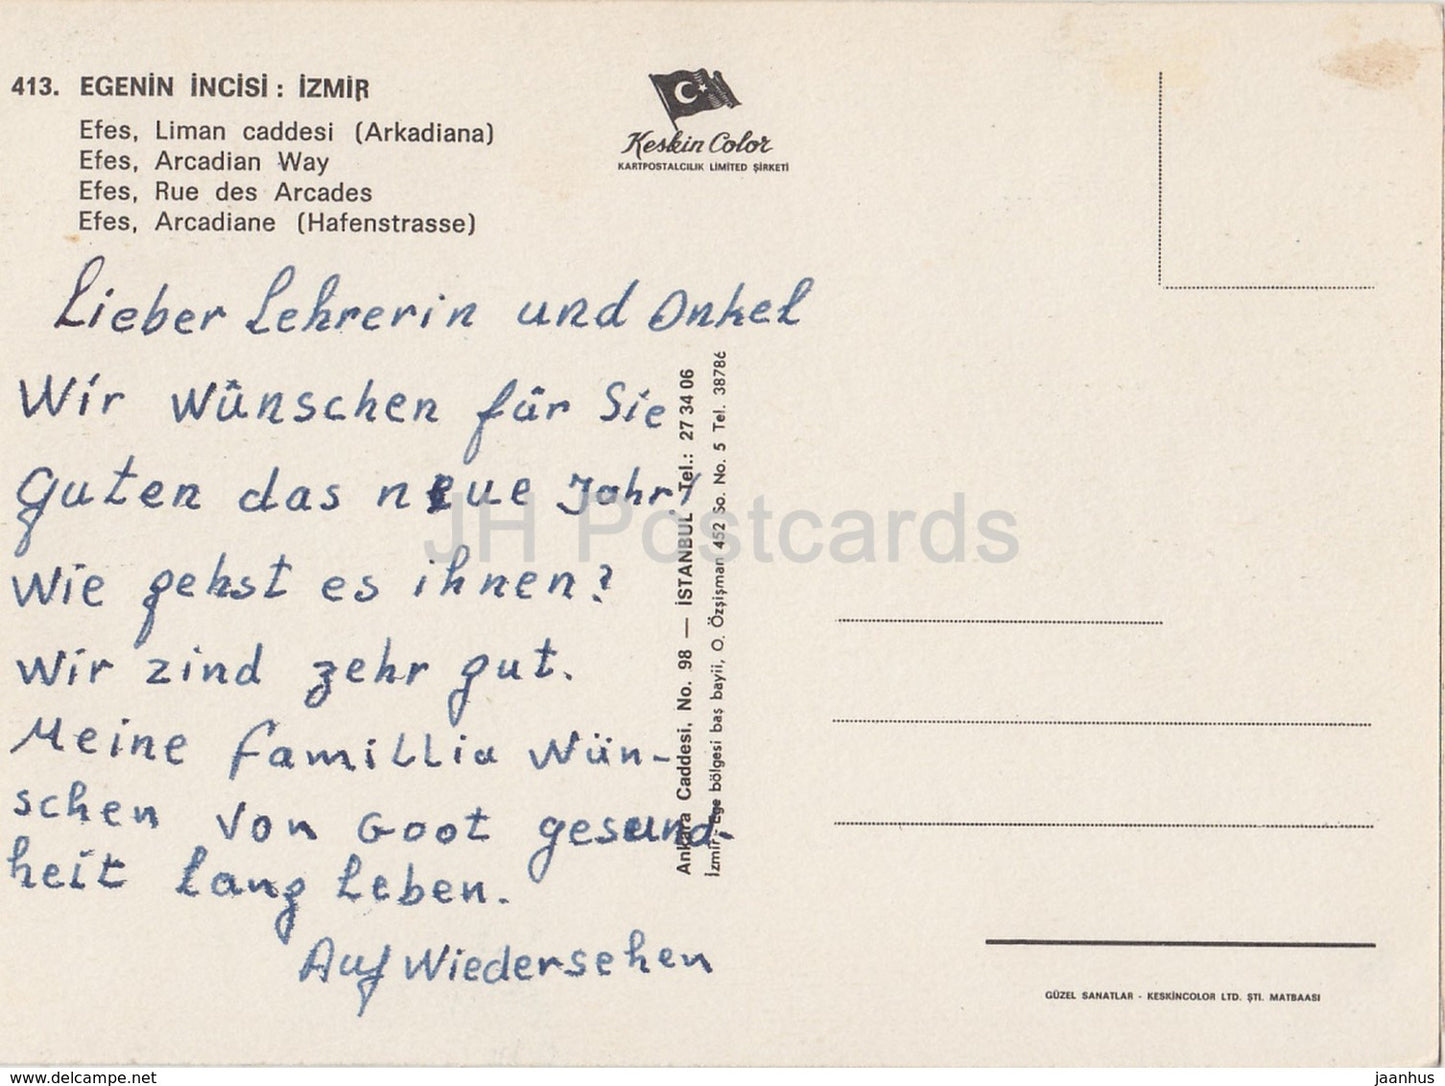 413. EGENİN İNCİSİ : İZMİR
Efes, Liman caddesi (Arkadiana)
Efes, Arcadian Way
Efes, Rue des Arcades
Efes, Arcadiane (Hafenstrasse)
Keskin Color
KARTPOSTALCILIK LİMİTED ŞİRKETİ
Lieber Lehrerin und Onkel
Wir wûnschen fûr Sie
guten das neue Jahr!
Wie gehst es ihnen?
Wir zind zehr gut.
Meine famillia Wün-
schen von Goot gesund-
heit lang leben.
Auf Wiedersehen
Ankara Caddesi, No. 98 — İSTANBUL Tel.: 27 34 06
İzmir, Ege bölgesi baş bayii, O. Özşişman 452 So. No. 5 Tel. 38786
JH Postcards
GÜZEL SANATLAR - KESKİNCOLOR LTD. ŞTİ. MATBAASI
www.delcampe.net
jaanhus